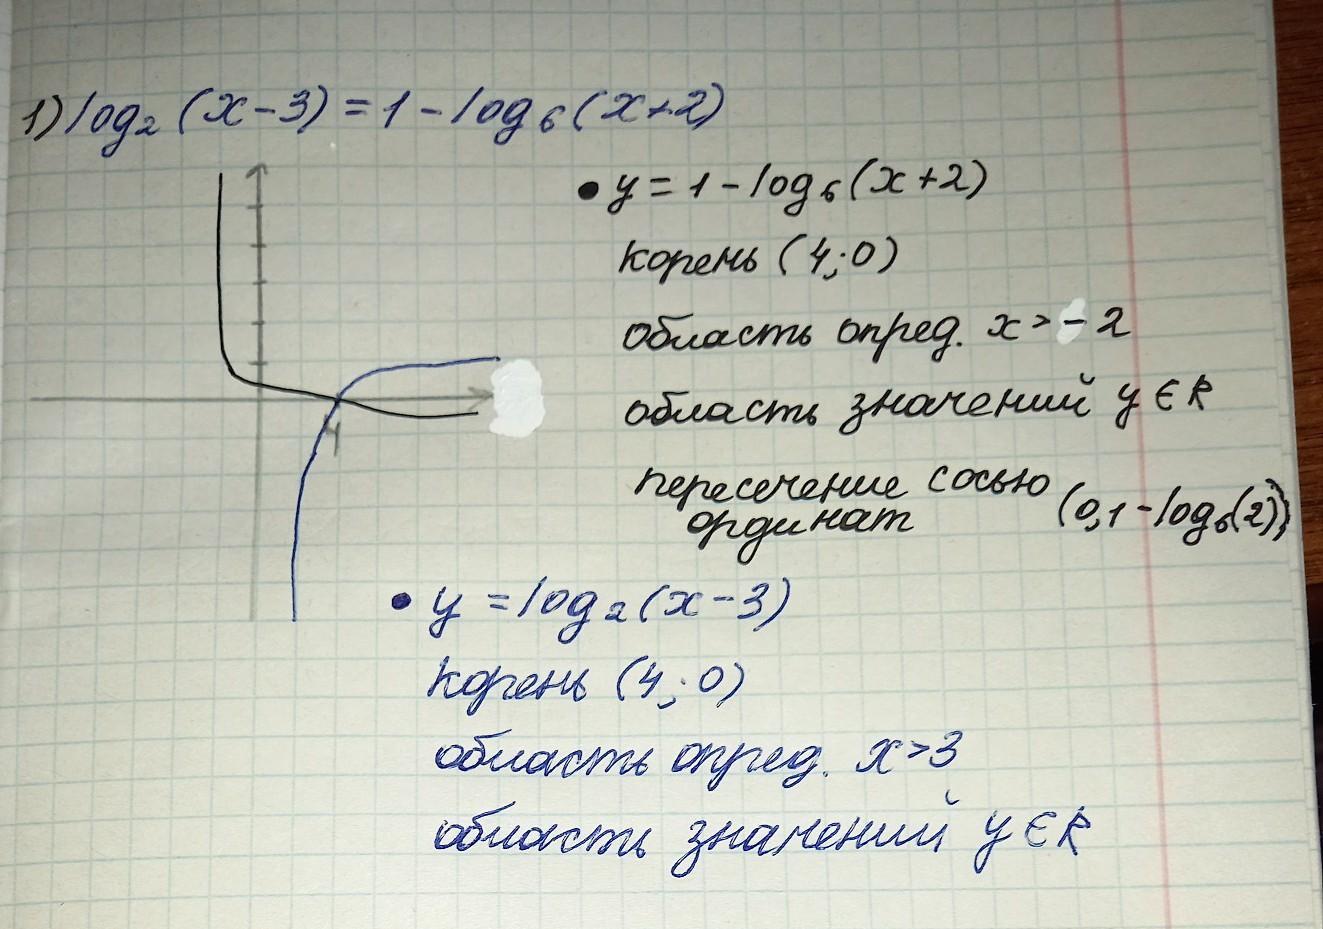 1) log₂ (x-3) = 1 - log₆ (x+2)
• y = 1 - log₆ (x+2)
корень (4;0)
область опред. x > -2
область значений y ∈ R
пересечение с осью
ординат (0,1 - log₆(2))
4
• y = log₂ (x-3)
корень (4;0)
область опред. x > 3
область значений y ∈ R